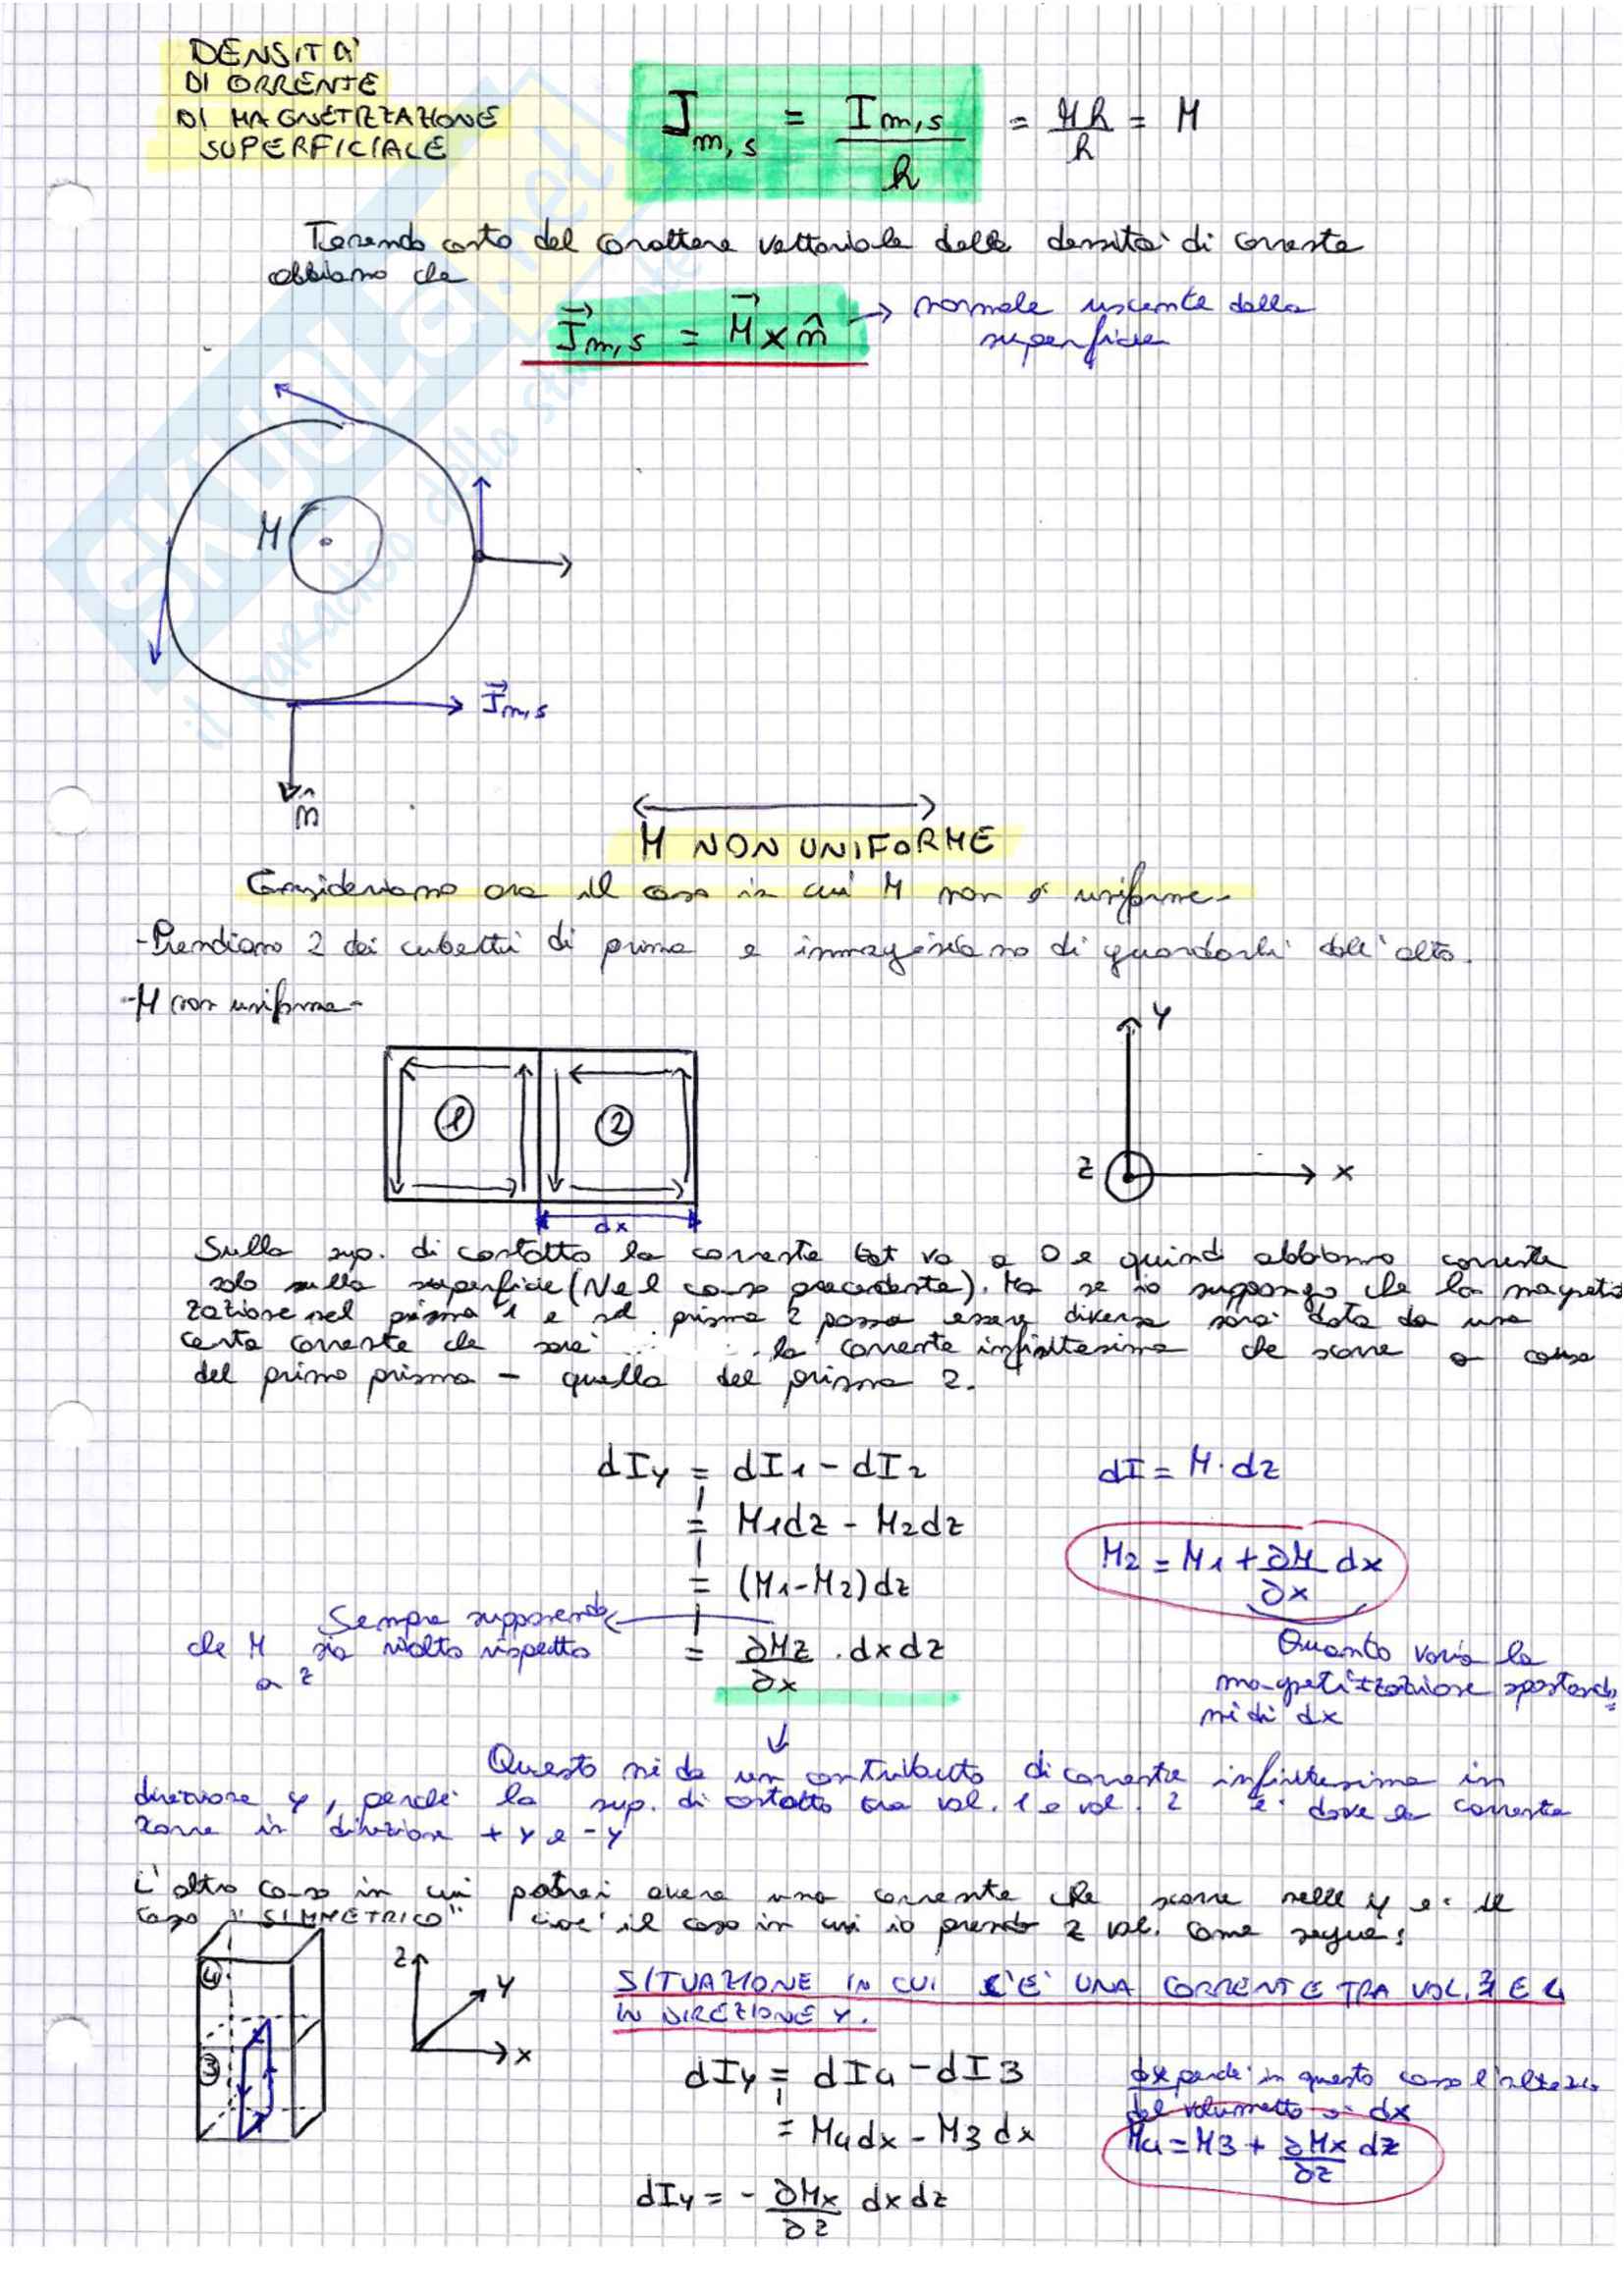 DENSITA'
DI ORRENTE
DI MAGNETIZZAZIONE
SUPERFICIALE
J_{m,s} = \frac{I_{m,s}}{h} = \frac{Mh}{h} = M
Tenendo conto del carattere vettoriale della densità di corrente
abbiamo che
\vec{J}_{m,s} = \vec{M} x \hat{n} → normale uscente dalla
superficie
M
\vec{J}_{m,s}
\hat{n}
M NON UNIFORME
Consideriamo ora il caso in cui M non è uniforme-
-Prendiamo 2 dei cubetti di prima e immaginiamo di guardarli dall'alto.
-M non uniforme-
Y
1 2
Z X
dx
Sulla sup. di contatto la corrente tot va a 0 e quindi abbiamo corrente
solo sulla superficie (Nel caso precedente). Ma se io suppongo che la magneti
zazione nel prisma 1 e nel prisma 2 possa essere diversa sarà data da una
certa corrente che sarà la corrente infinitesima che scorre a causa
del primo prisma - quella del prisma 2.
dIy = dI1 - dI2 dI = M · dz
= M1dz - M2dz
M2 = M1 + \frac{∂M}{∂x} dx
= (M1-M2)dz
Sempre supponendo
che M sia rivolto rispetto
a z
= \frac{∂Mz}{∂x} . dxdz
Quanto varia la
magnetizzazione spostando
mi di dx
Questo mi da un contributo di corrente infinitesima in
direzione y, perché la sup. di contatto tra vol. 1 e vol. 2 è dove la corrente
scorre in direzione +y e -y
L'altro caso in cui potrei avere una corrente che scorre nelle y è il
caso "SIMMETRICO" cioè il caso in cui io prendo 2 vol. come segue:
4
3
Z
Y
X
SITUAZIONE IN CUI C'E' UNA CORRENTE TRA VOL. 3 E 4
IN DIREZIONE Y.
dIy = dI4 - dI3
dx perché in questo caso l'altezza
del volumetto è dx
= M4dx - M3dx
M4 = M3 + \frac{∂Mx}{∂z} dz
dIy = - \frac{∂Mx}{∂z} dxdz
SKUOLA.net
il paradiso dello studente